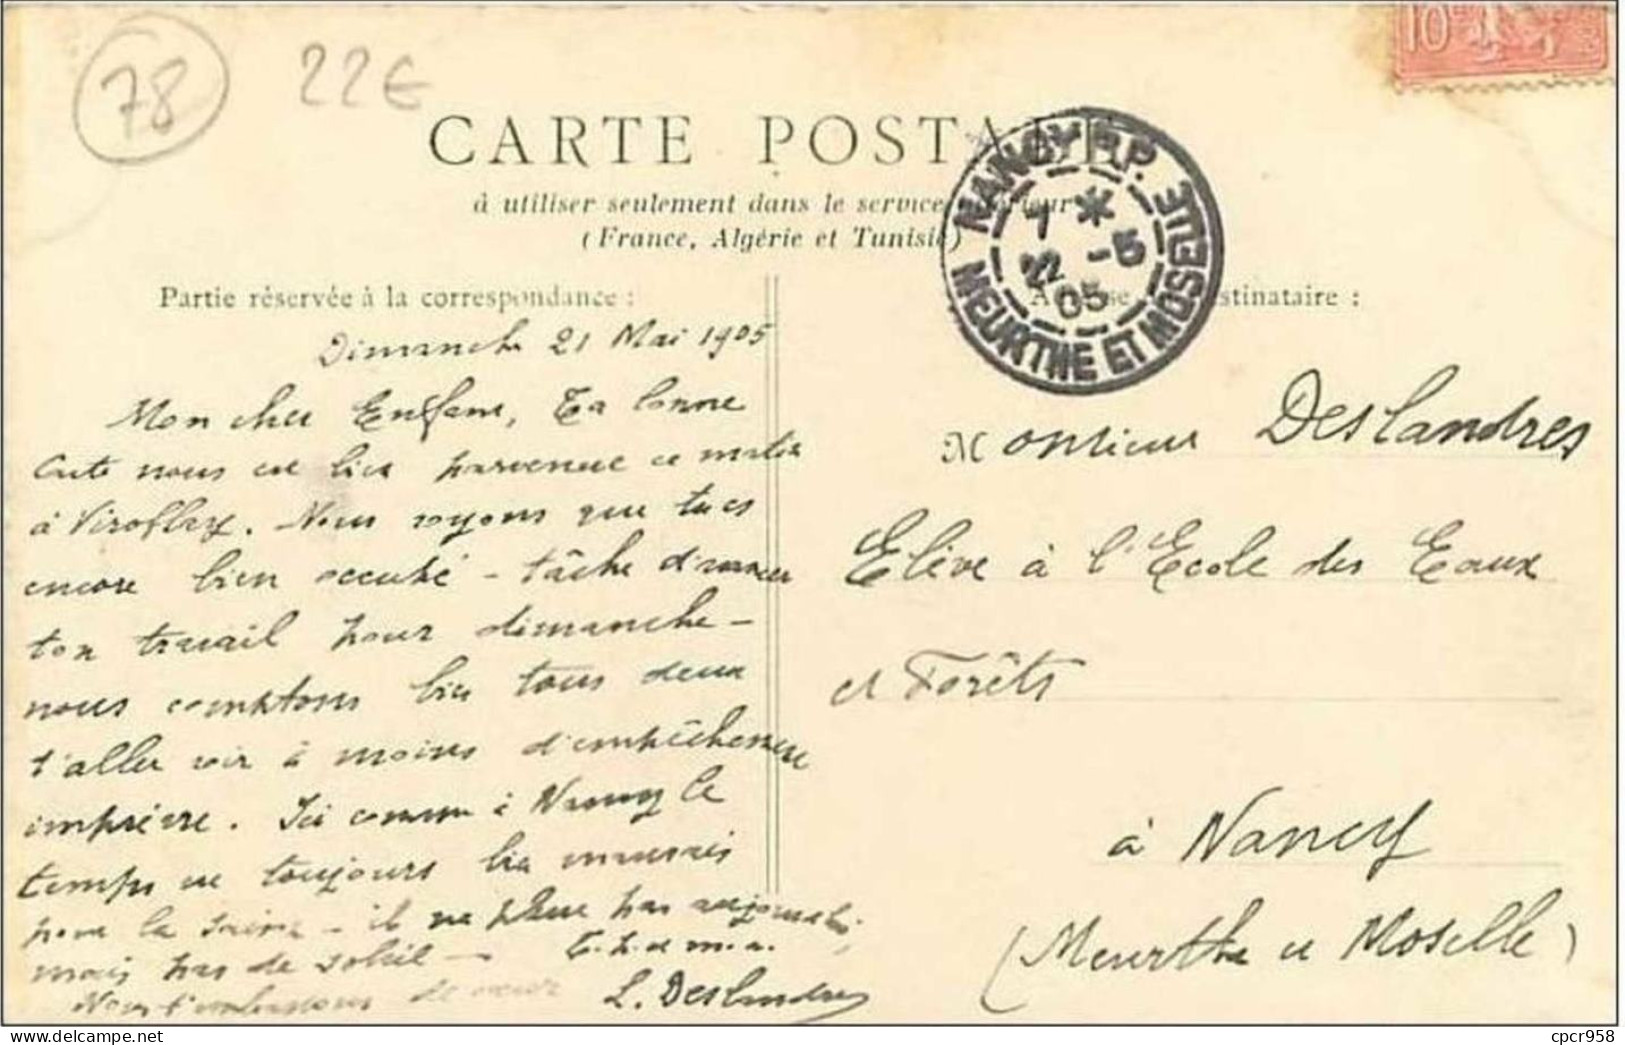 78
22€
10
CARTE POSTALE
à utiliser seulement dans le service intérieur
(France, Algérie et Tunisie)
NANCY R.P.
7 *
22 -5
05
MEURTHE ET MOSELLE
Partie réservée à la correspondance :
Dimanche 21 Mai 1905
Mon cher Enfant, Ta bonne
Carte nous est bien parvenue ce matin
à Viroflay. Nous voyons que tu es
encore bien occupé - tâche d'avancer
ton travail pour dimanche -
nous comptons bien tous deux
t'aller voir à moins d'empêchement
imprévu. Ici comme à Nancy le
temps est toujours bien mauvais
pour la saison - il ne pleut pas aujourd'hui,
mais pas de soleil -
Nous t'embrassons de cœur
L. Deslandres
Adresse du destinataire :
Monsieur Deslandres
Elève à l'Ecole des Eaux
et Forêts
à Nancy
(Meurthe et Moselle)
cpcr958